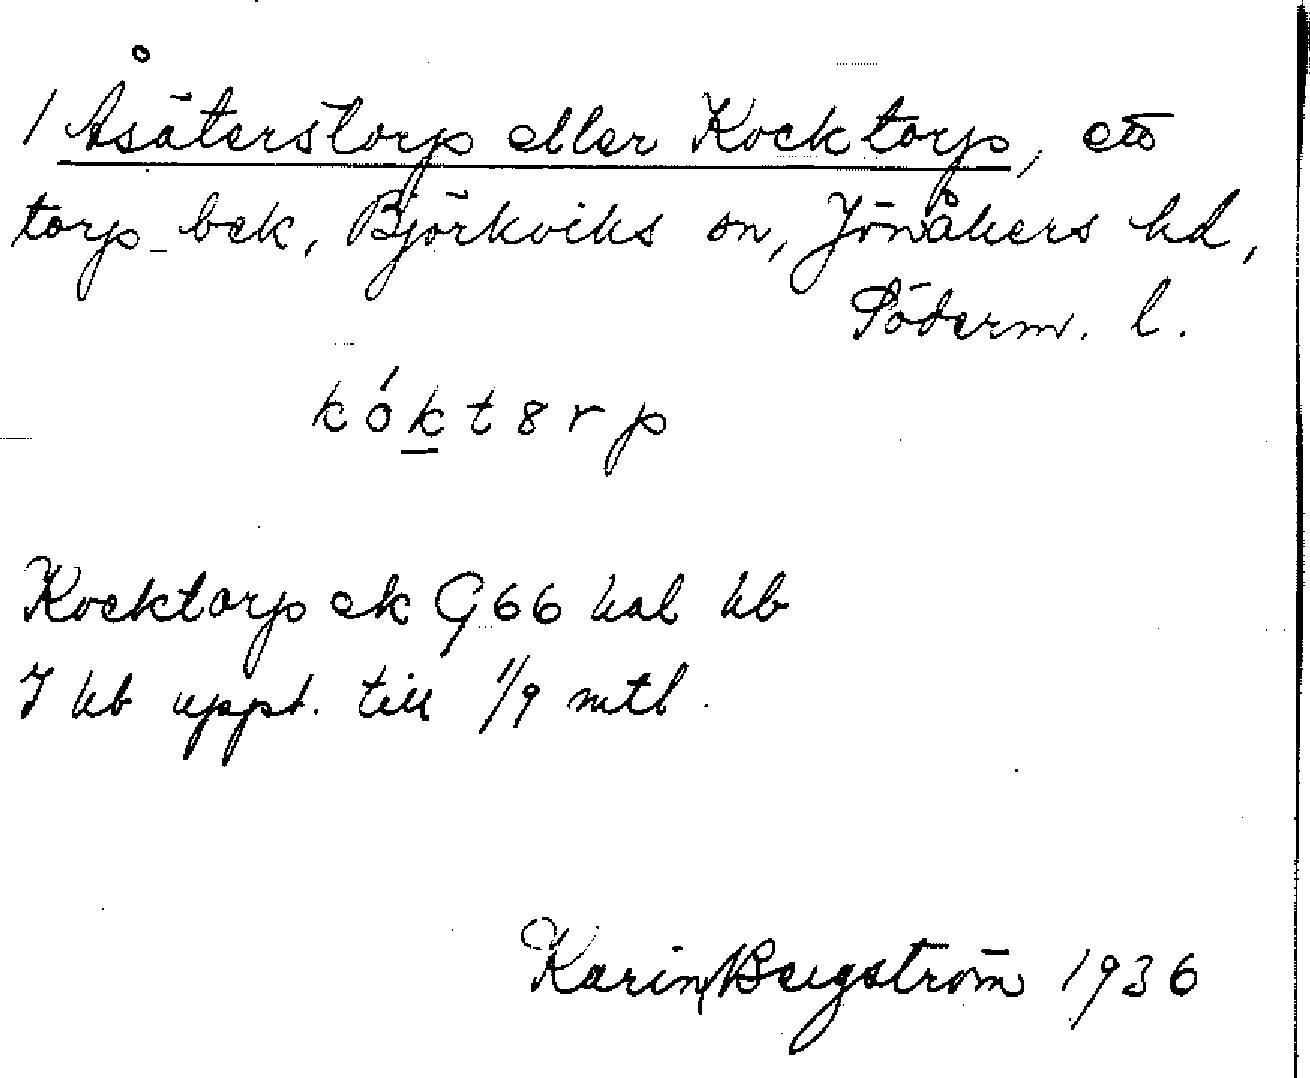 1 Åsäterstorp eller Kocktorp, ett
torp - bek, Björkviks sn, Jönåkers hd,
Söderm. l.
kókt8rp
Kocktorp ek G66 hal hb
I hb uppt. till 1/9 mtl.
Karin Bergström 1936